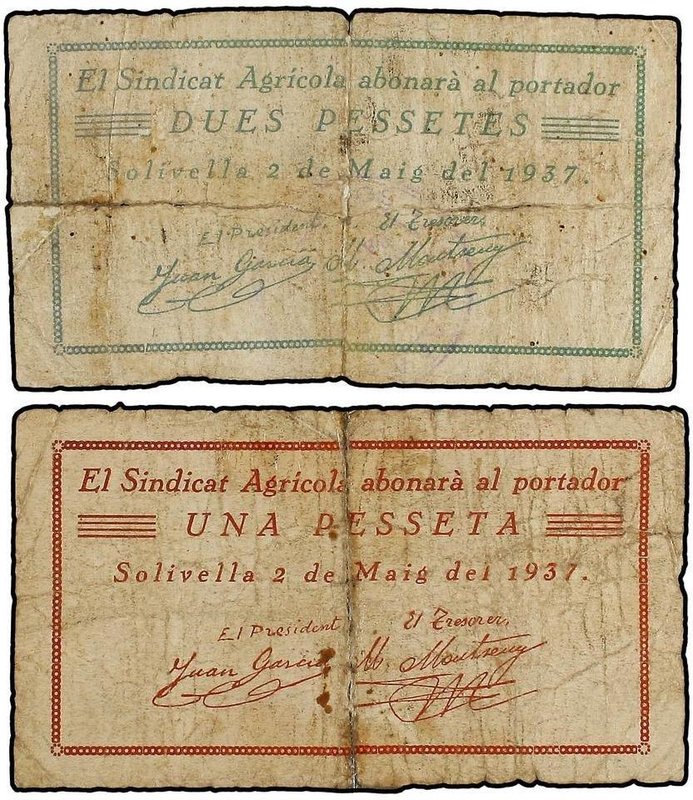 El Sindicat Agrícola abonarà al portador
DUES PESSETES
Solivella 2 de Maig del 1937.
El President. El Tresorer,
Juan García M. Montseny
El Sindicat Agrícola abonarà al portador
UNA PESSETA
Solivella 2 de Maig del 1937.
El President El Tresorer,
Juan García M. Montseny